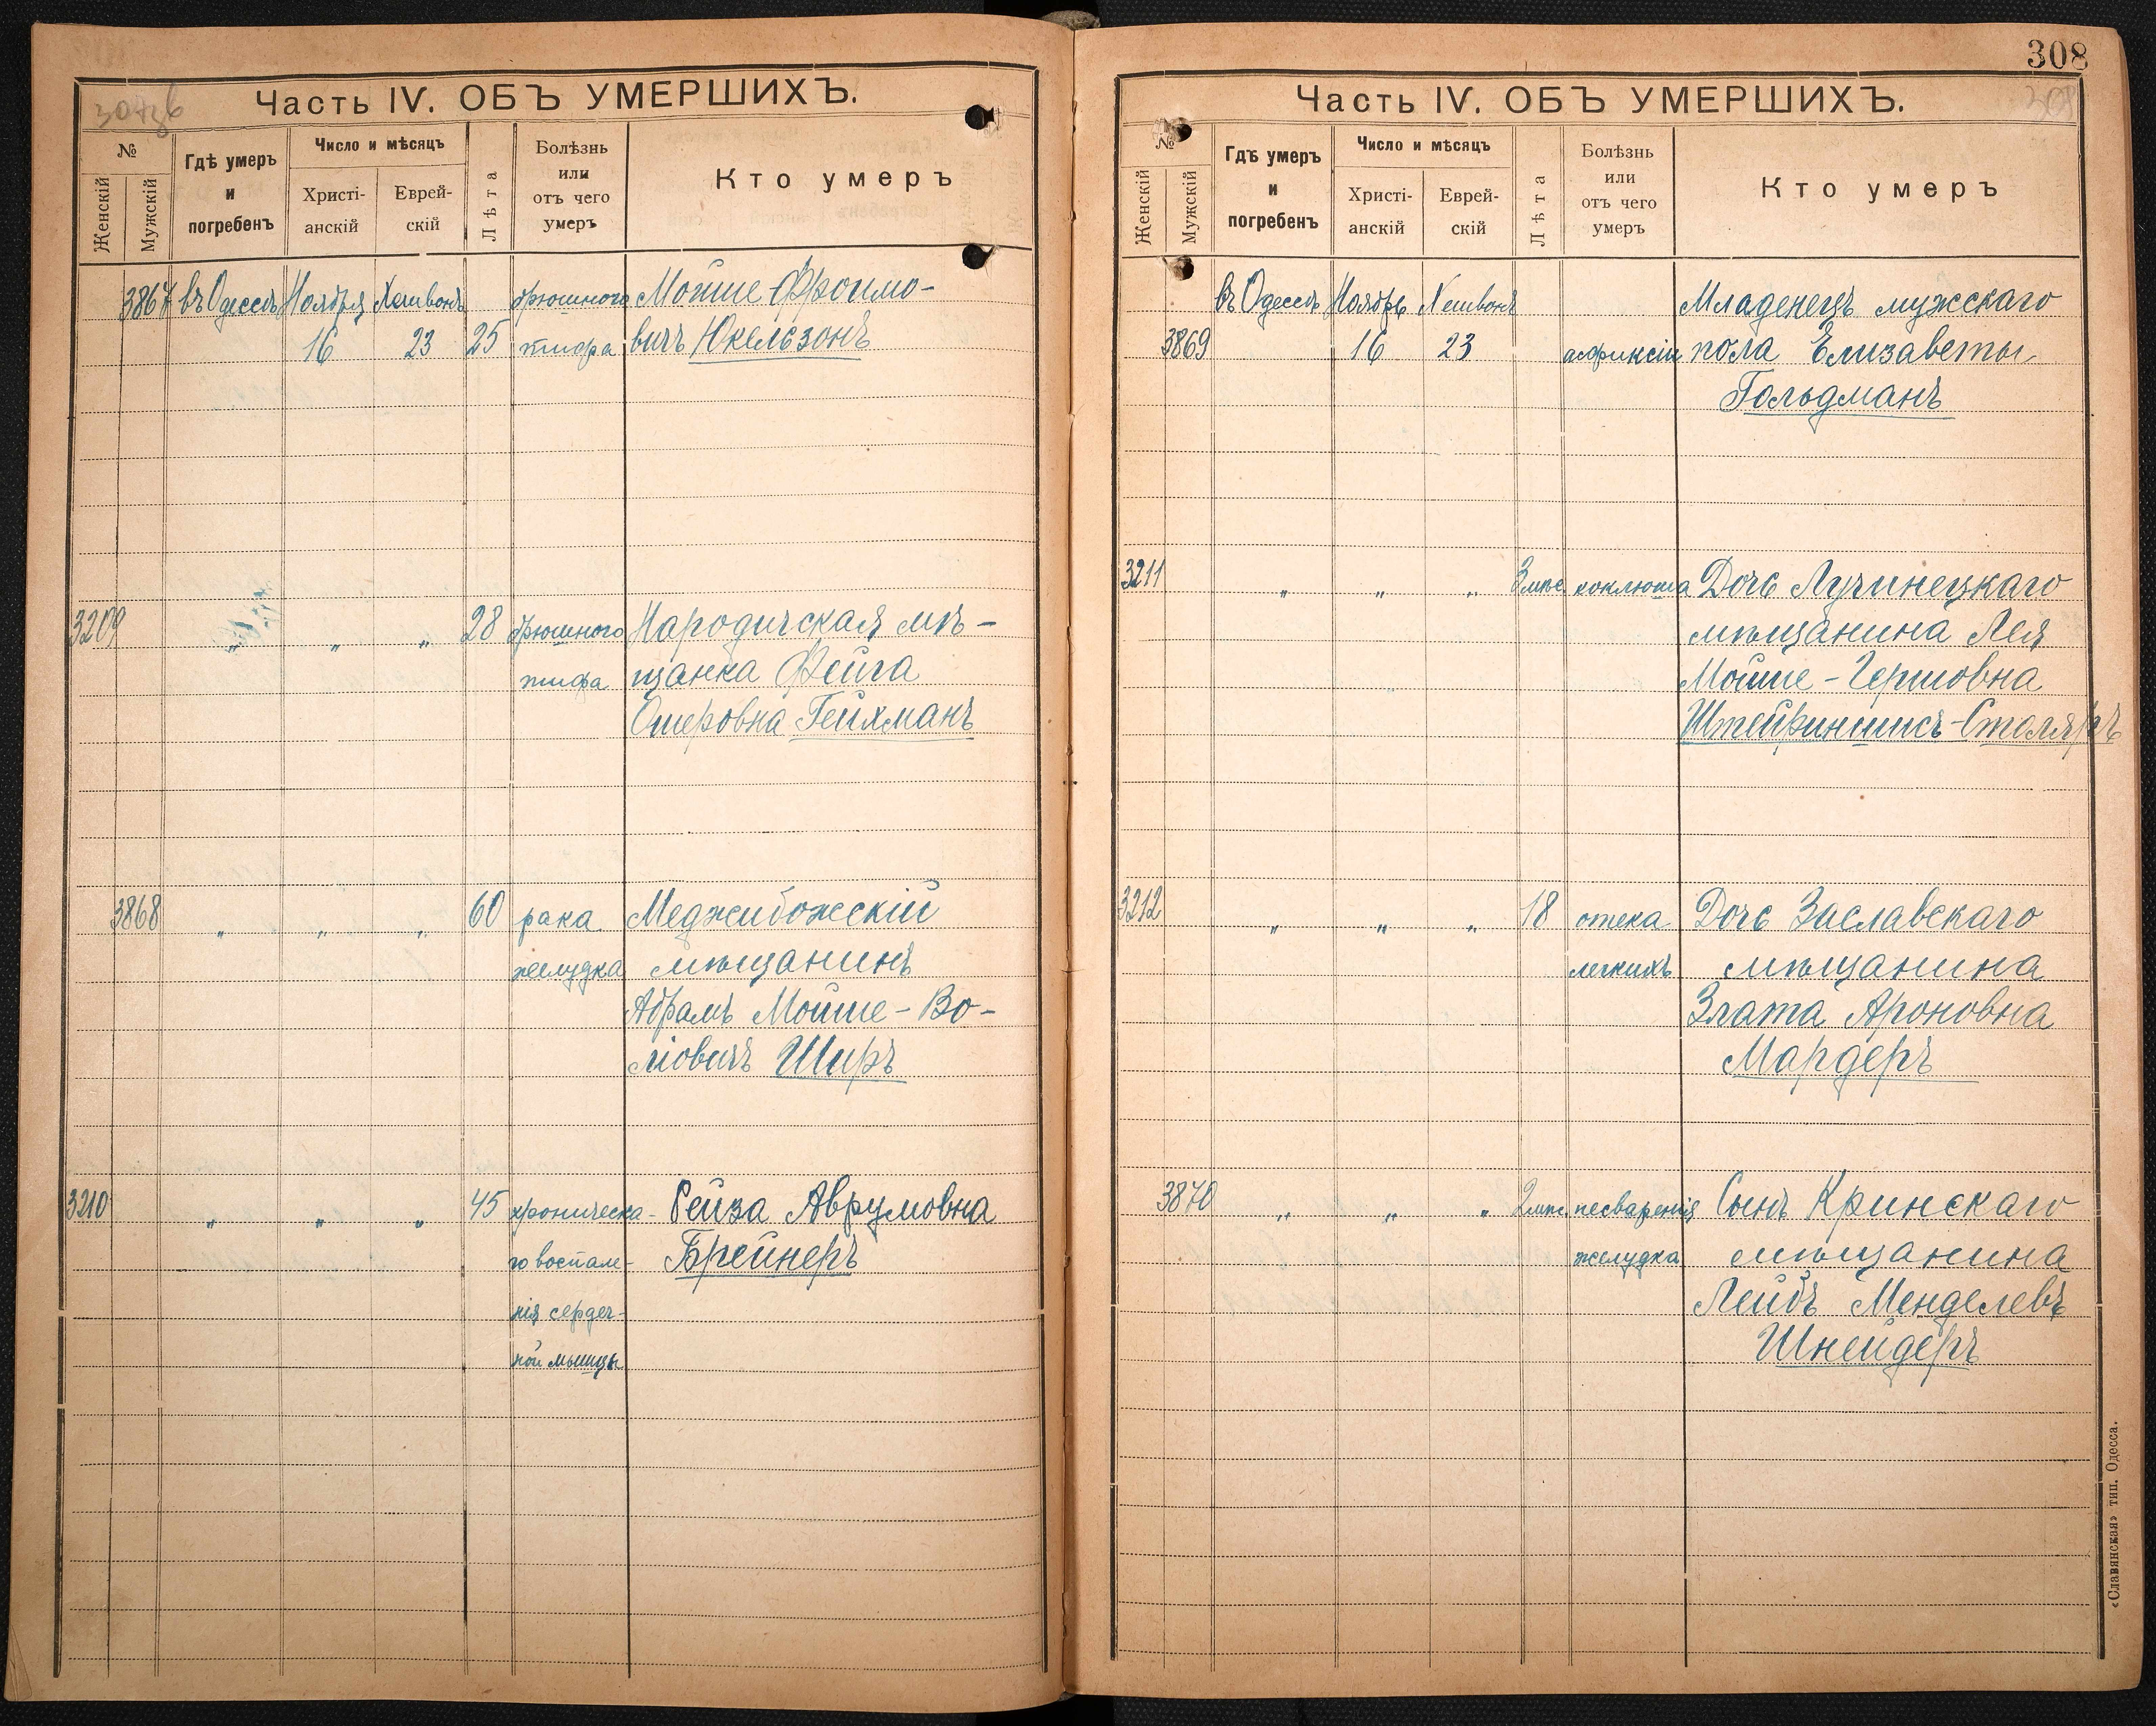 Часть IV. ОБЪ УМЕРШИХЪ.
№
Женскій
Мужскій
Гдѣ умеръ и погребенъ
Число и мѣсяцъ
Христіанскій
Еврейскій
Лѣта
Болѣзнь или отъ чего умеръ
Кто умеръ
3867 въ Одессѣ Ноября Хешвонъ брюшного Мойше Фроимо-
16 23 25 тифа вичъ Юкельзонъ
3209 „ „ 28 брюшного Народичская мѣ-
тифа щанка Фейга
Ошеровна Гейхманъ
3868 „ „ „ 60 рака Меджибожскій
желудка мѣщанинъ
Абрамъ Мойше-Во-
ліовичъ Ширъ
3210 „ „ „ 45 хроническа- Рейза Аврумовна
го воспале- Брейнеръ
нія сердеч-
ной мышцы
308
Часть IV. ОБЪ УМЕРШИХЪ.
№
Женскій
Мужскій
Гдѣ умеръ и погребенъ
Число и мѣсяцъ
Христіанскій
Еврейскій
Лѣта
Болѣзнь или отъ чего умеръ
Кто умеръ
въ Одессѣ Ноябрь Хешвонъ Младенецъ мужскаго
3869 16 23 асфиксіи пола Елизаветы
Гольдманъ
3211 „ „ „ 3 мѣс. коклюша Дочь Лучинецкаго
мѣщанина Лея
Мойше-Гершовна
Столяръ
3212 „ „ „ 18 отека Дочь Заславскаго
легкихъ мѣщанина
Злата Ароновна
Мардеръ
3870 „ „ „ 2 мѣс. несваренія Сынъ Кринскаго
желудка мѣщанина
Лейбъ Менделевъ
Шнейдеръ
«Славянская» тип. Одесса.